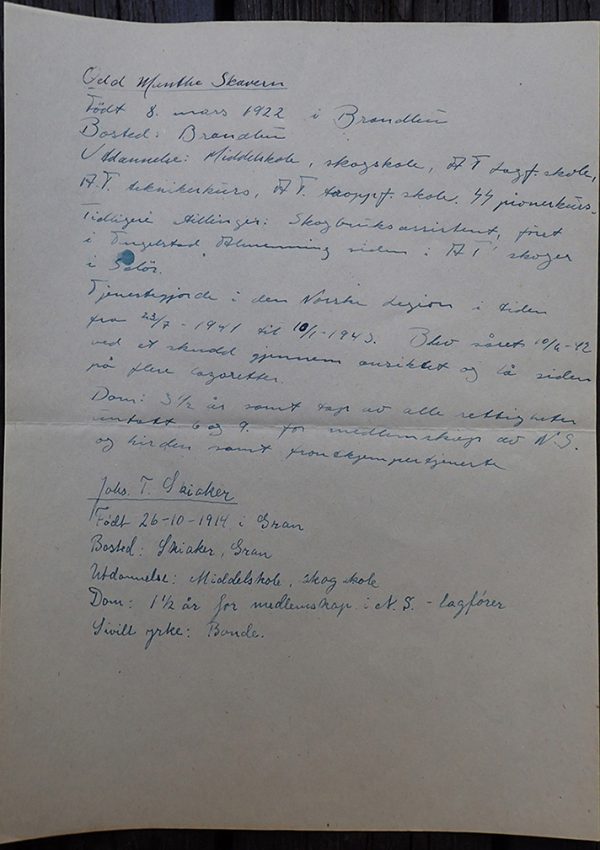 Odd Munthe Skavern
Født 8. mars 1922 i Brandbu
Bosted: Brandbu
Utdannelse: Middelskole, skogskole, AT lagf. skole,
A.T. teknikerkurs, A.T. troppf. skole. SS pionerkurs.
Tidligere stillinger: Skogbruksassistent, først
i Tingelstad Almenning siden i AT skoger
i Solør.
Tjenestegjorde i den Norske Legion i tiden
fra 23/7 - 1941 til 10/1 - 1943. Blev såret 10/4-42
ved et skudd gjennem ansiktet og lå siden
på flere lazaretter
Dom: 3 1/2 år samt tap av alle rettigheter
untatt 6 og 9. for medlemskap av N.S.
og hirden samt frontkjempertjeneste
Johs. T. Skiaker
Født 26-10-1914 i Gran
Bosted: Skiaker, Gran
Utdannelse: Middelskole, skogskole
Dom: 1 1/2 år for medlemskap i N.S. - lagfører
Sivilt yrke: Bonde.